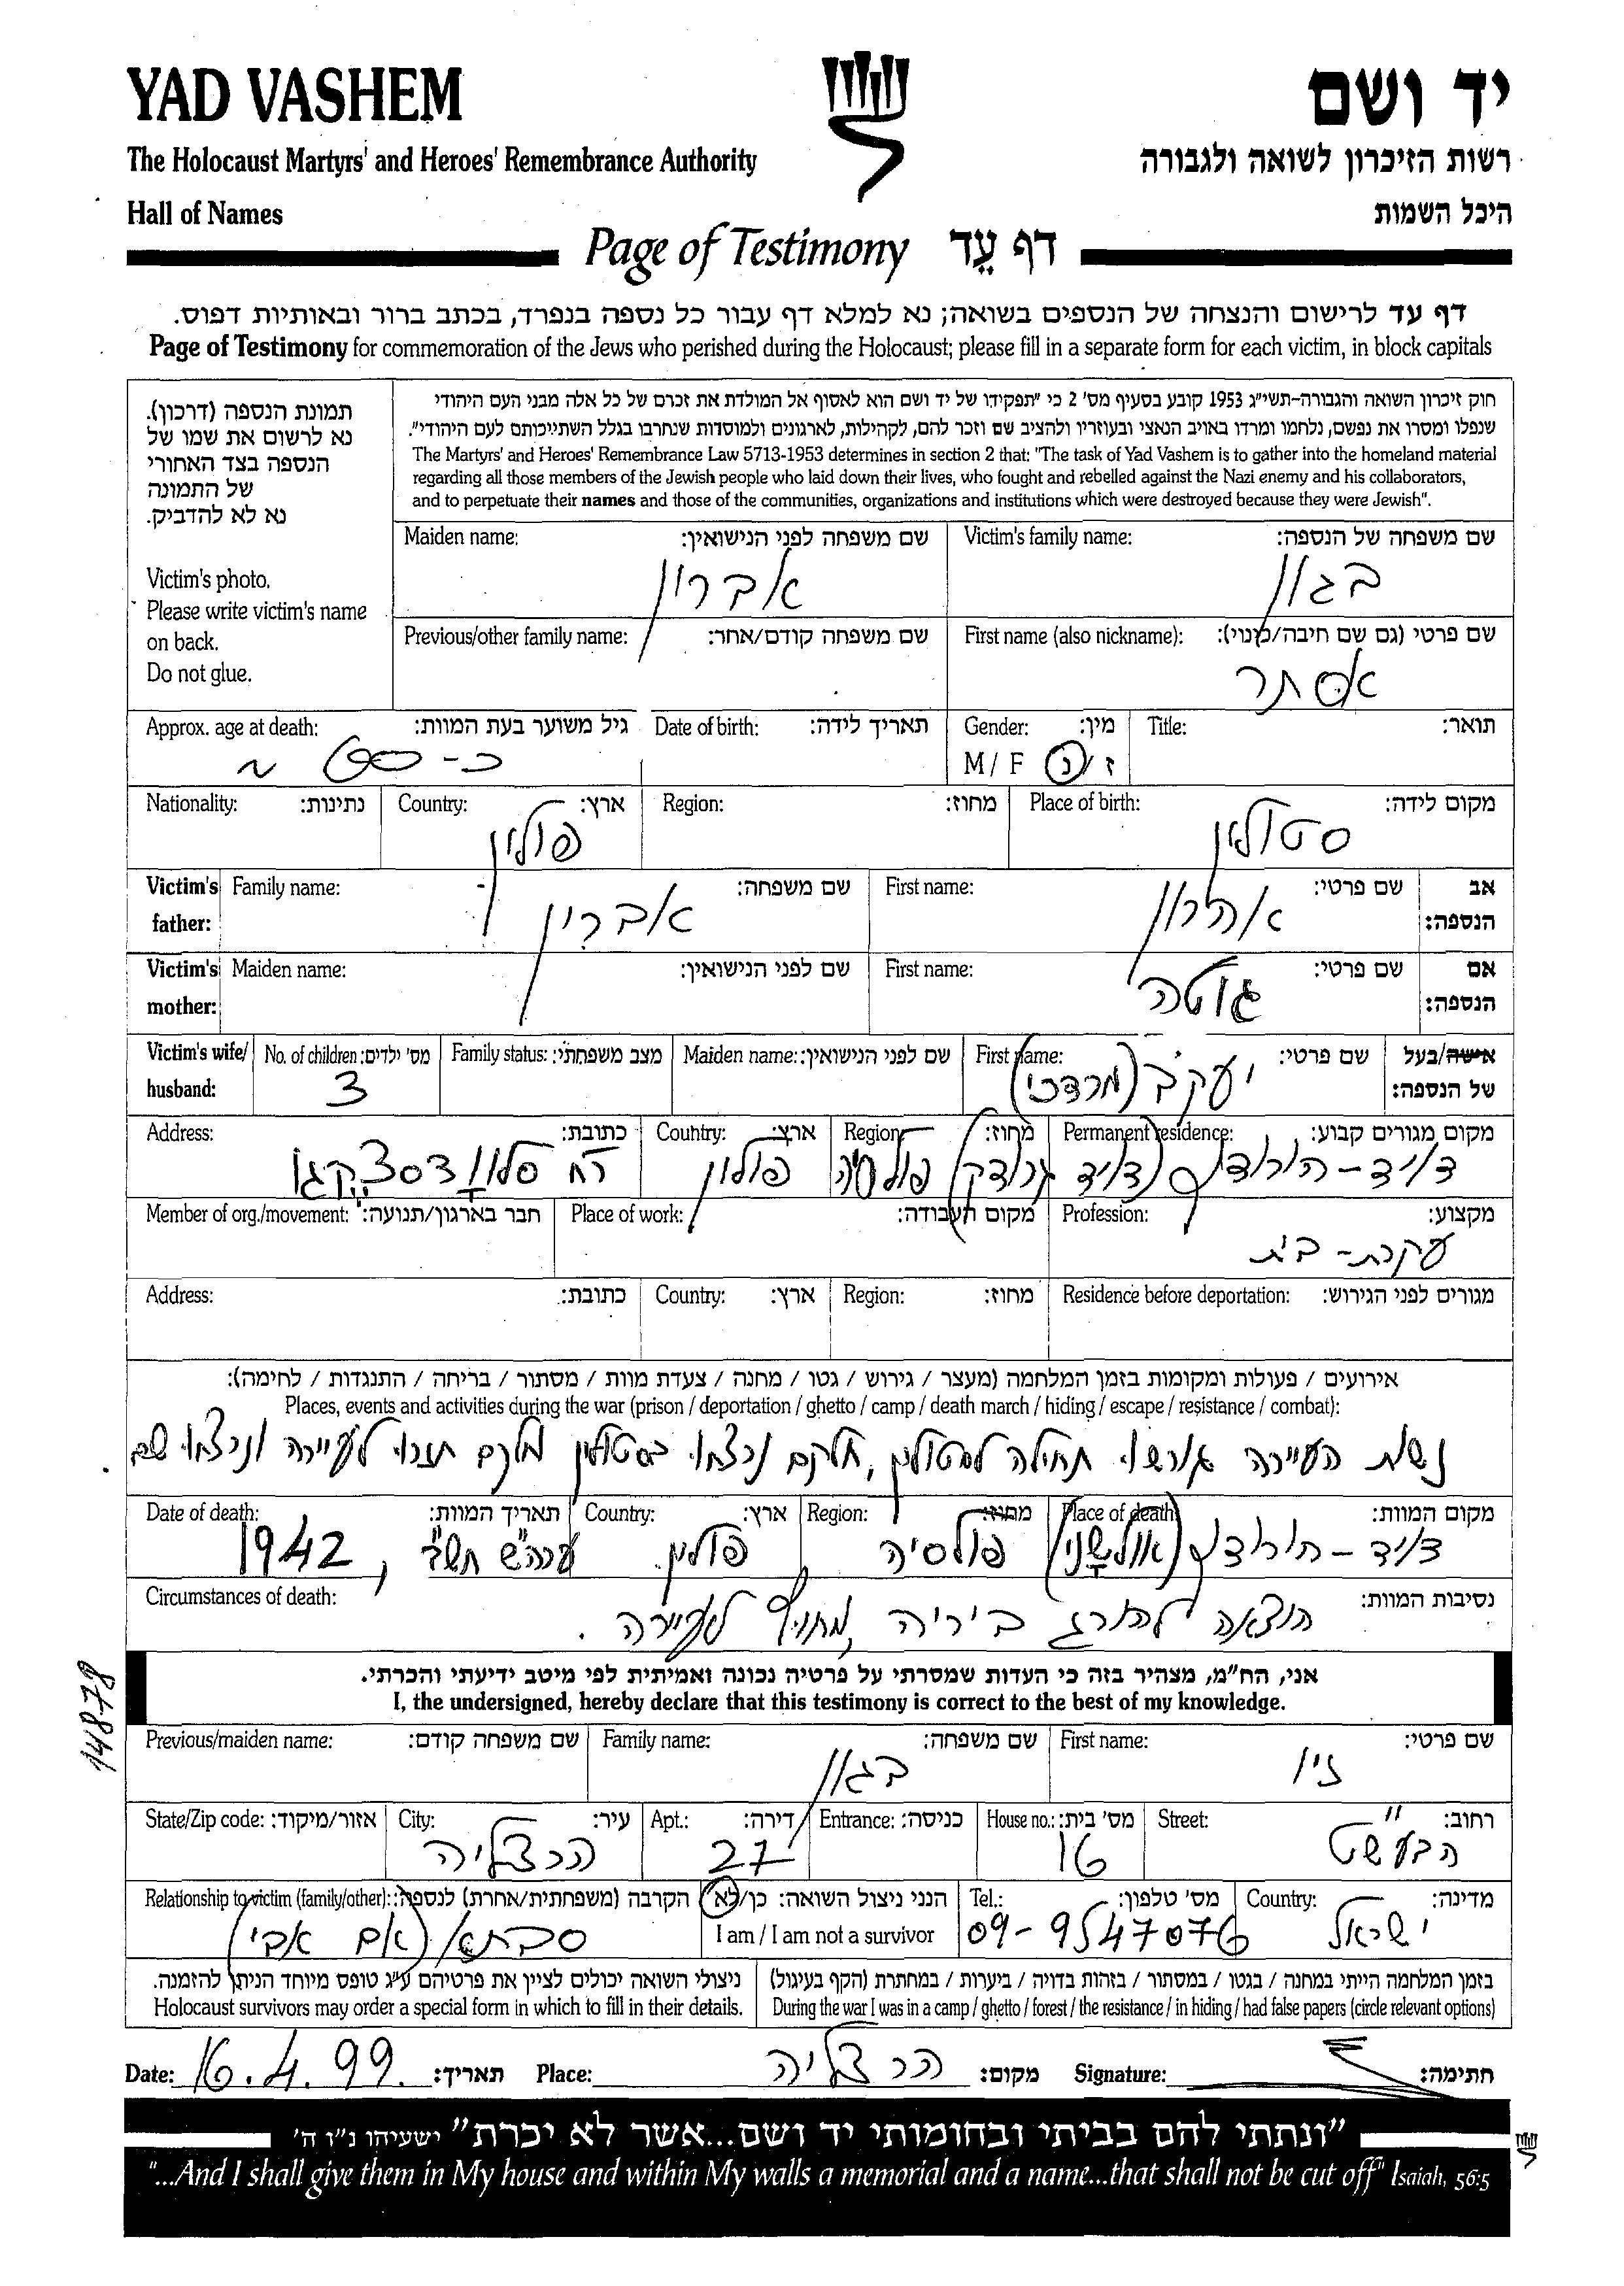 YAD VASHEM
יד ושם
The Holocaust Martyrs' and Heroes' Remembrance Authority
רשות הזיכרון לשואה ולגבורה
Hall of Names
היכל השמות
Page of Testimony דף עֵד
דף עד לרישום והנצחה של הנספים בשואה; נא למלא דף עבור כל נספה בנפרד, בכתב ברור ובאותיות דפוס.
Page of Testimony for commemoration of the Jews who perished during the Holocaust; please fill in a separate form for each victim, in block capitals
תמונת הנספה (דרכון).
נא לרשום את שמו של
הנספה בצד האחורי
של התמונה
נא לא להדביק.
Victim's photo.
Please write victim's name
on back.
Do not glue.
חוק זיכרון השואה והגבורה-תשי"ג 1953 קובע בסעיף מס' 2 כי "תפקידו של יד ושם הוא לאסוף אל המולדת את זכרם של כל אלה מבני העם היהודי
שנפלו ומסרו את נפשם, נלחמו ומרדו באויב הנאצי ובעוזריו ולהציב שם וזכר להם, לקהילות, לארגונים ולמוסדות שנחרבו בגלל השתייכותם לעם היהודי".
The Martyrs' and Heroes' Remembrance Law 5713-1953 determines in section 2 that: "The task of Yad Vashem is to gather into the homeland material
regarding all those members of the Jewish people who laid down their lives, who fought and rebelled against the Nazi enemy and his collaborators,
and to perpetuate their names and those of the communities, organizations and institutions which were destroyed because they were Jewish".
Maiden name: שם משפחה לפני הנישואין: Victim's family name: שם משפחה של הנספה:
אברון בגון
Previous/other family name: שם משפחה קודם/אחר: First name (also nickname): שם פרטי (גם שם חיבה/כינוי):
אסתר
Approx. age at death: גיל משוער בעת המוות: Date of birth: תאריך לידה: Gender: מין: Title: תואר:
כ-60 M / F ז/נ
Nationality: נתינות: Country: ארץ: Region: מחוז: Place of birth: מקום לידה:
פולין סטולין
Victim's father: Family name: שם משפחה: First name: שם פרטי: אב הנספה:
אברין אהרון
Victim's mother: Maiden name: שם לפני הנישואין: First name: שם פרטי: אם הנספה:
גוטה
Victim's wife/ husband: No. of children: מס' ילדים: Family status: מצב משפחתי: Maiden name: שם לפני הנישואין: First name: שם פרטי: אישה/בעל של הנספה:
3 יעקב (מרדכי)
Address: כתובת: Country: ארץ: Region: מחוז: Permanent residence: מקום מגורים קבוע:
רח פולין פולסיה דויד-הורודוק (דויד גרודק)
Member of org./movement: חבר בארגון/תנועה: Place of work: מקום העבודה: Profession: מקצוע:
עקרת-בית
Address: כתובת: Country: ארץ: Region: מחוז: Residence before deportation: מגורים לפני הגירוש:
אירועים / פעולות ומקומות בזמן המלחמה (מעצר / גירוש / גטו / מחנה / צעדת מוות / מסתור / בריחה / התנגדות / לחימה):
Places, events and activities during the war (prison / deportation / ghetto / camp / death march / hiding / escape / resistance / combat):
נשות העיירה גורשו תחילה לסטולין, חלקם נרצחו בסטולין חלקם חזרו לעיירה ונרצחו שם
Date of death: תאריך המוות: Country: ארץ: Region: מחוז: Place of death: מקום המוות:
1942, פולין פולסיה דויד-הורודוק
Circumstances of death: נסיבות המוות:
הוצאה להורג ביריה מחוץ לעיירה.
אני, הח"מ, מצהיר בזה כי העדות שמסרתי על פרטיה נכונה ואמיתית לפי מיטב ידיעתי והכרתי.
I, the undersigned, hereby declare that this testimony is correct to the best of my knowledge.
14878
Previous/maiden name: שם משפחה קודם: Family name: שם משפחה: First name: שם פרטי:
בגון זיו
State/Zip code: אזור/מיקוד: City: עיר: Apt.: דירה: Entrance: כניסה: House no.: מס' בית: Street: רחוב:
הרצליה 27 16 הבעש"ט
Relationship to victim (family/other): הקרבה (משפחתית/אחרת) לנספה: הנני ניצול השואה: כן/לא Tel.: מס' טלפון: Country: מדינה:
סבתא (אם אבי) I am / I am not a survivor 09-9547076 ישראל
ניצולי השואה יכולים לציין את פרטיהם ע"ג טופס מיוחד הניתן להזמנה. בזמן המלחמה הייתי במחנה / בגטו / במסתור / בזהות בדויה / ביערות / במחתרת (הקף בעיגול)
Holocaust survivors may order a special form in which to fill in their details. During the war I was in a camp / ghetto / forest / the resistance / in hiding / had false papers (circle relevant options)
Date: 16.4.99. תאריך: Place: הרצליה מקום: Signature: חתימה:
"ונתתי להם בביתי ובחומותי יד ושם...אשר לא יכרת" ישעיהו נ"ו ה'
"...And I shall give them in My house and within My walls a memorial and a name...that shall not be cut off" Isaiah, 56:5